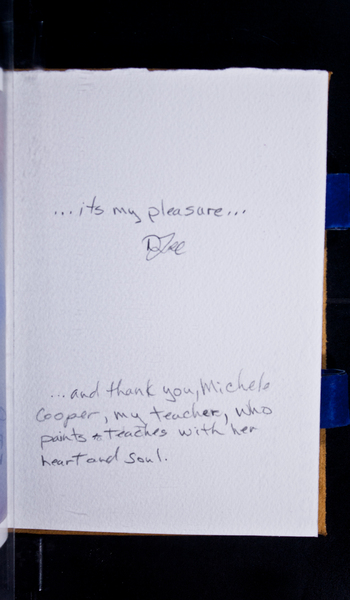 ...its my pleasure...
...and thank you, Michele
Cooper, my teacher, who
paints + teaches with her
heart and soul.